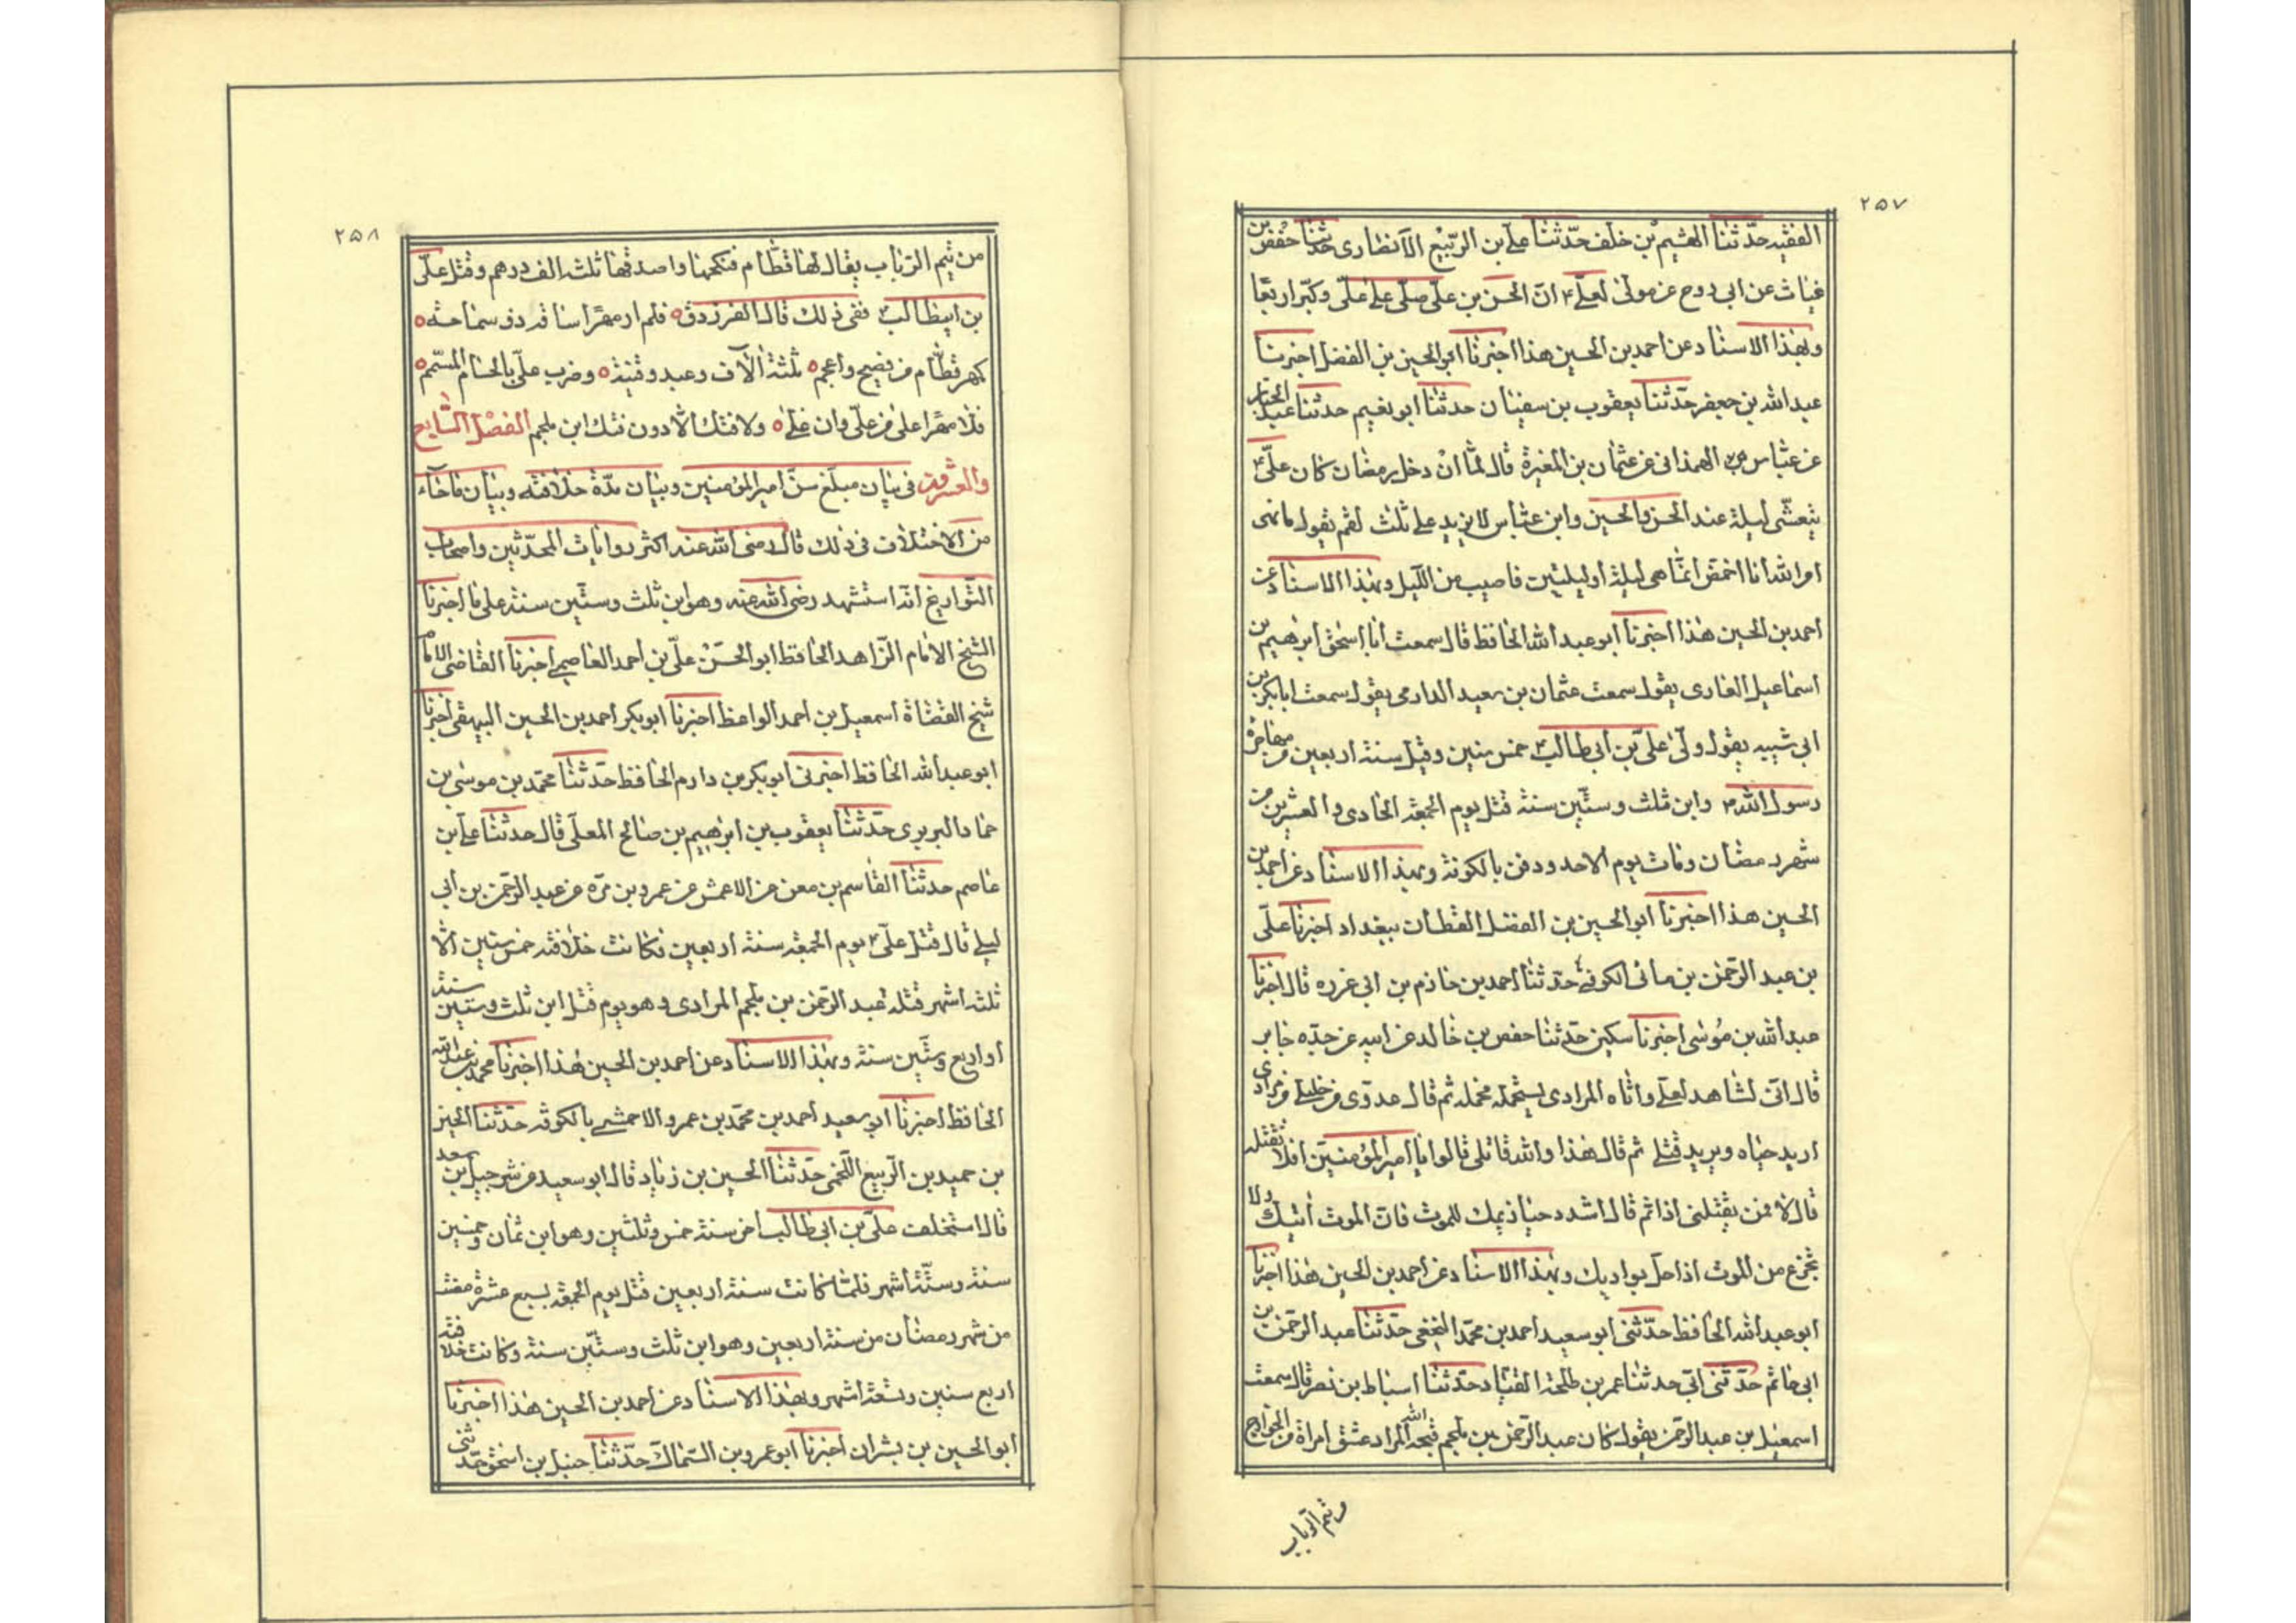 ٢٥٧
الفقيه حدّثنا الهشيم بن خلف حدّثنا علي بن الربيع الأنصاری حدثنا حفص بن
غياث عن ابی روح عن مولی لعلی ع انّ الحسن بن علی صلّی علی علیّ وكبّر اربعًا
وبهذا الاسناد عن احمد بن الحسين هذا اخبرنا ابوالحسين بن الفضل اخبرنا
عبدالله بن جعفر حدّثنا يعقوب بن سفيان حدثنا ابونعيم حدثنا عبد الجبار
عن عبّاس الهمدانی عن عثمان بن المغيرة قال لمّا انْ دخل رمضان كان علیّ ع
يتعشّی ليلة عند الحسن والحسين وابن عبّاس لا يزيد علی ثلث لقم يقول يأتينی
امرالله انا اخمص انمّا هی ليلة أوليلتين فاصيب من الليل وبهذا الاسناد عن
احمد بن الحسين هذا اخبرنا ابو عبدالله الحافظ قال سمعت أبا إسحق ابرهيم بن
اسماعيل القاری يقول سمعت عثمان بن سعيد الدارمی يقول سمعت ابابكر بن
ابی شيبه يقول ولّی علیّ بن ابی طالب ع خمس سنين وقتل سنة اربعين من مهاجرة
رسول الله ص وابن ثلث وستّين سنة قتل يوم الجمعة الحادی والعشرين من
شهر رمضان ومات يوم الاحد ودفن بالكوفة وبهذا الاسناد عن احمد بن
الحسين هذا اخبرنا ابوالحسين بن الفضل القطان ببغداد اخبرنا علی
بن عبد الرّحمن بن مانی الكوفی حدّثنا احمد بن حازم بن ابی غرزه قال اخبرنا
عبدالله بن مُوسی اخبرنا سكين حدّثنا حفص بن خالد عن ابيه عن جدّه جابر
قال انّی لشاهد لعلی واتاه المرادی يستحمله فحمله ثم قال عدوّی من خليلی من مرادی
اريد حياه ويريد قتلی ثم قال هذا والله قاتلی قالوا يا امير المؤمنين افلا تقتله
قال لا فمن يقتلنی اذا ثم قال اشدد حيازيمك للموت فان الموت اٰتيك ولا
تجزع من الموت اذا حل بواديك وبهذا الاسناد عن احمد بن الحسين هذا اخبرنا
ابو عبدالله الحافظ حدّثنی ابو سعيد احمد بن محمّد النخعی حدّثنا عبد الرّحمن بن
ابی حاتم حدّثنی ابی حدثنا عمر بن طلحة القنّاد حدّثنا اسباط بن نصر قال سمعت
اسمعيل بن عبد الرّحمن يقول كان عبد الرّحمن بن ملجم قبحه الله المراد عشق امراة من الخوارج
من تيم الرباب
٢٥٨
من تيم الرّباب يقال لها قطّام فنكحها واصدقها ثلثة الف درهم وقتل علیّ
بن ابيطالب ع ففی ذلك قال الفرزدق ه فلم ار مهرًا ساقه ذو سماحة ه
كمهر قطّام من فصيح واعجم ه ثلثة اٰلاف وعبد وقينة ه وضرب علیّ بالحسام المسمّم ه
فلا مهرا اعلی من علیّ وان غلی ه ولا فتك الّا دون فتك ابن ملجم الفصل السّابع
والعشرون فی بيان مبلغ سنّ امير المؤمنين وبيان مدّة خلافته وبيان ما جآء
من الاختلاف فی ذلك قال رضی الله عنه اكثر روايات المحدّثين واصحاب
التواريخ انه استشهد رضی الله عنه وهو ابن ثلث وستّين سنة علی ما اخبرنا
الشيخ الامام الزّاهد الحافظ ابو الحسَن علیّ بن احمد العاصمی اخبرنا القاضی الامام
شيخ القضاة اسمعيل بن احمد الواعظ اخبرنا ابوبكر احمد بن الحسين البيهقی اخبرنا
ابو عبدالله الحافظ اخبرنی ابوبكر بن دارم الحافظ حدّثنا محمّد بن موسی بن
حماد البربری حدّثنا يعقوب بن ابرهيم بن صالح المعلّی قال حدثنا علی بن
عاصم حدثنا القاسم بن معن عن الاعمش عن عمرو بن مرّه عن عبد الرّحمن بن ابی
ليلی قال قتل علیّ ع يوم الجمعة سنة اربعين فكانت خلافته خمس سنين الّا
ثلثة اشهر قتله عبد الرّحمن بن ملجم المرادی وهو يوم قتل ابن ثلث وستين سنة
أو اربع وستّين سنة وبهذا الاسناد عن احمد بن الحسين هذا اخبرنا محمّد بن عبدالله
الحافظ اخبرنا ابو سعيد احمد بن محمّد بن عمرو الاحمشی بالكوفة حدّثنا الحسين
بن حميد بن الرّبيع اللّخمی حدّثنا الحسين بن زياد قال ابو سعيد من شرحبيل بن سعد
قال استخلف علیّ بن ابی طالب اخر سنة خمس وثلثين وهو ابن ثمان وخمسين
سنة وستّة اشهر فلمّا كانت سنة اربعين قتل يوم الجمعة لسبع عشرة مضت
من شهر رمضان من سنة اربعين وهو ابن ثلث وستّين سنة وكانت خلافته
اربع سنين وتسعة اشهر وبهذا الاسناد عن احمد بن الحسين هذا اخبرنا
ابوالحسين بن بشران اخبرنا ابو عمرو بن السّماك حدّثنا حنبل بن اسحق حدّثنی